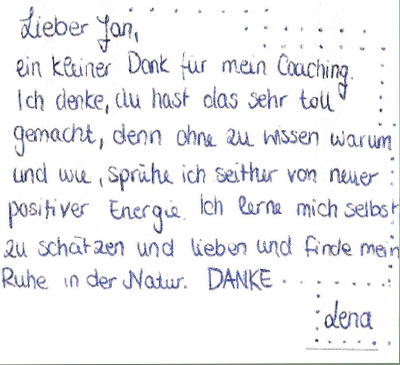 Lieber Jan,
ein kleiner Dank für mein Coaching.
Ich denke, du hast das sehr toll
gemacht, denn ohne zu wissen warum
und wie, sprühe ich seither von neuer
positiver Energie. Ich lerne mich selbst
zu schätzen und lieben und finde mein
Ruhe in der Natur. DANKE
Lena